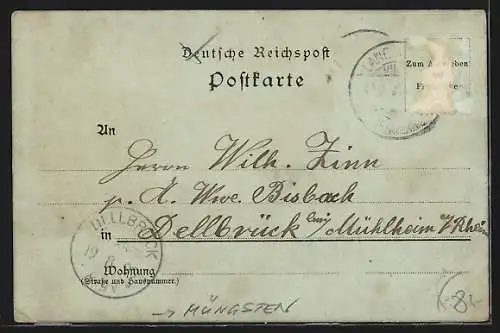 Deutsche Reichspost
Postkarte
Zum Aufkleben
An
Herrn Wilh. Zinn
p. A. Wwe. Bisbach
in Dellbrück bei/Mühlheim a/Rhein
DELLBRÜCK
Wohnung
(Straße und Hausnummer.)
→ MÜNGSTEN